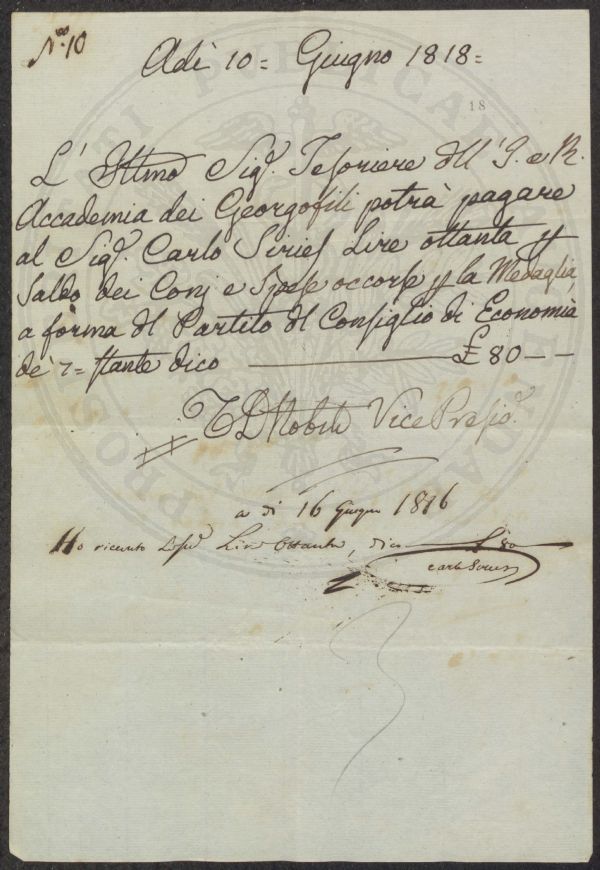 N.ro 10
Adì 10= Giugno 1818=
18
L' Ittmo Sig.r Tesoriere dll' I. e R.
Accademia dei Georgofili potrà pagare
al Sig.r Carlo Siries Lire ottanta p
Saldo dei Conj e Spese occorse p la Medaglia,
a forma dl Partito dl Consiglio di Economia
de' 7= stante dico ——— £ 80 — —
Vice Presid.e
a di 16 Giugno 1816
Ho ricevuto Lire Ottanta, dico £ 80
Carlo Siries